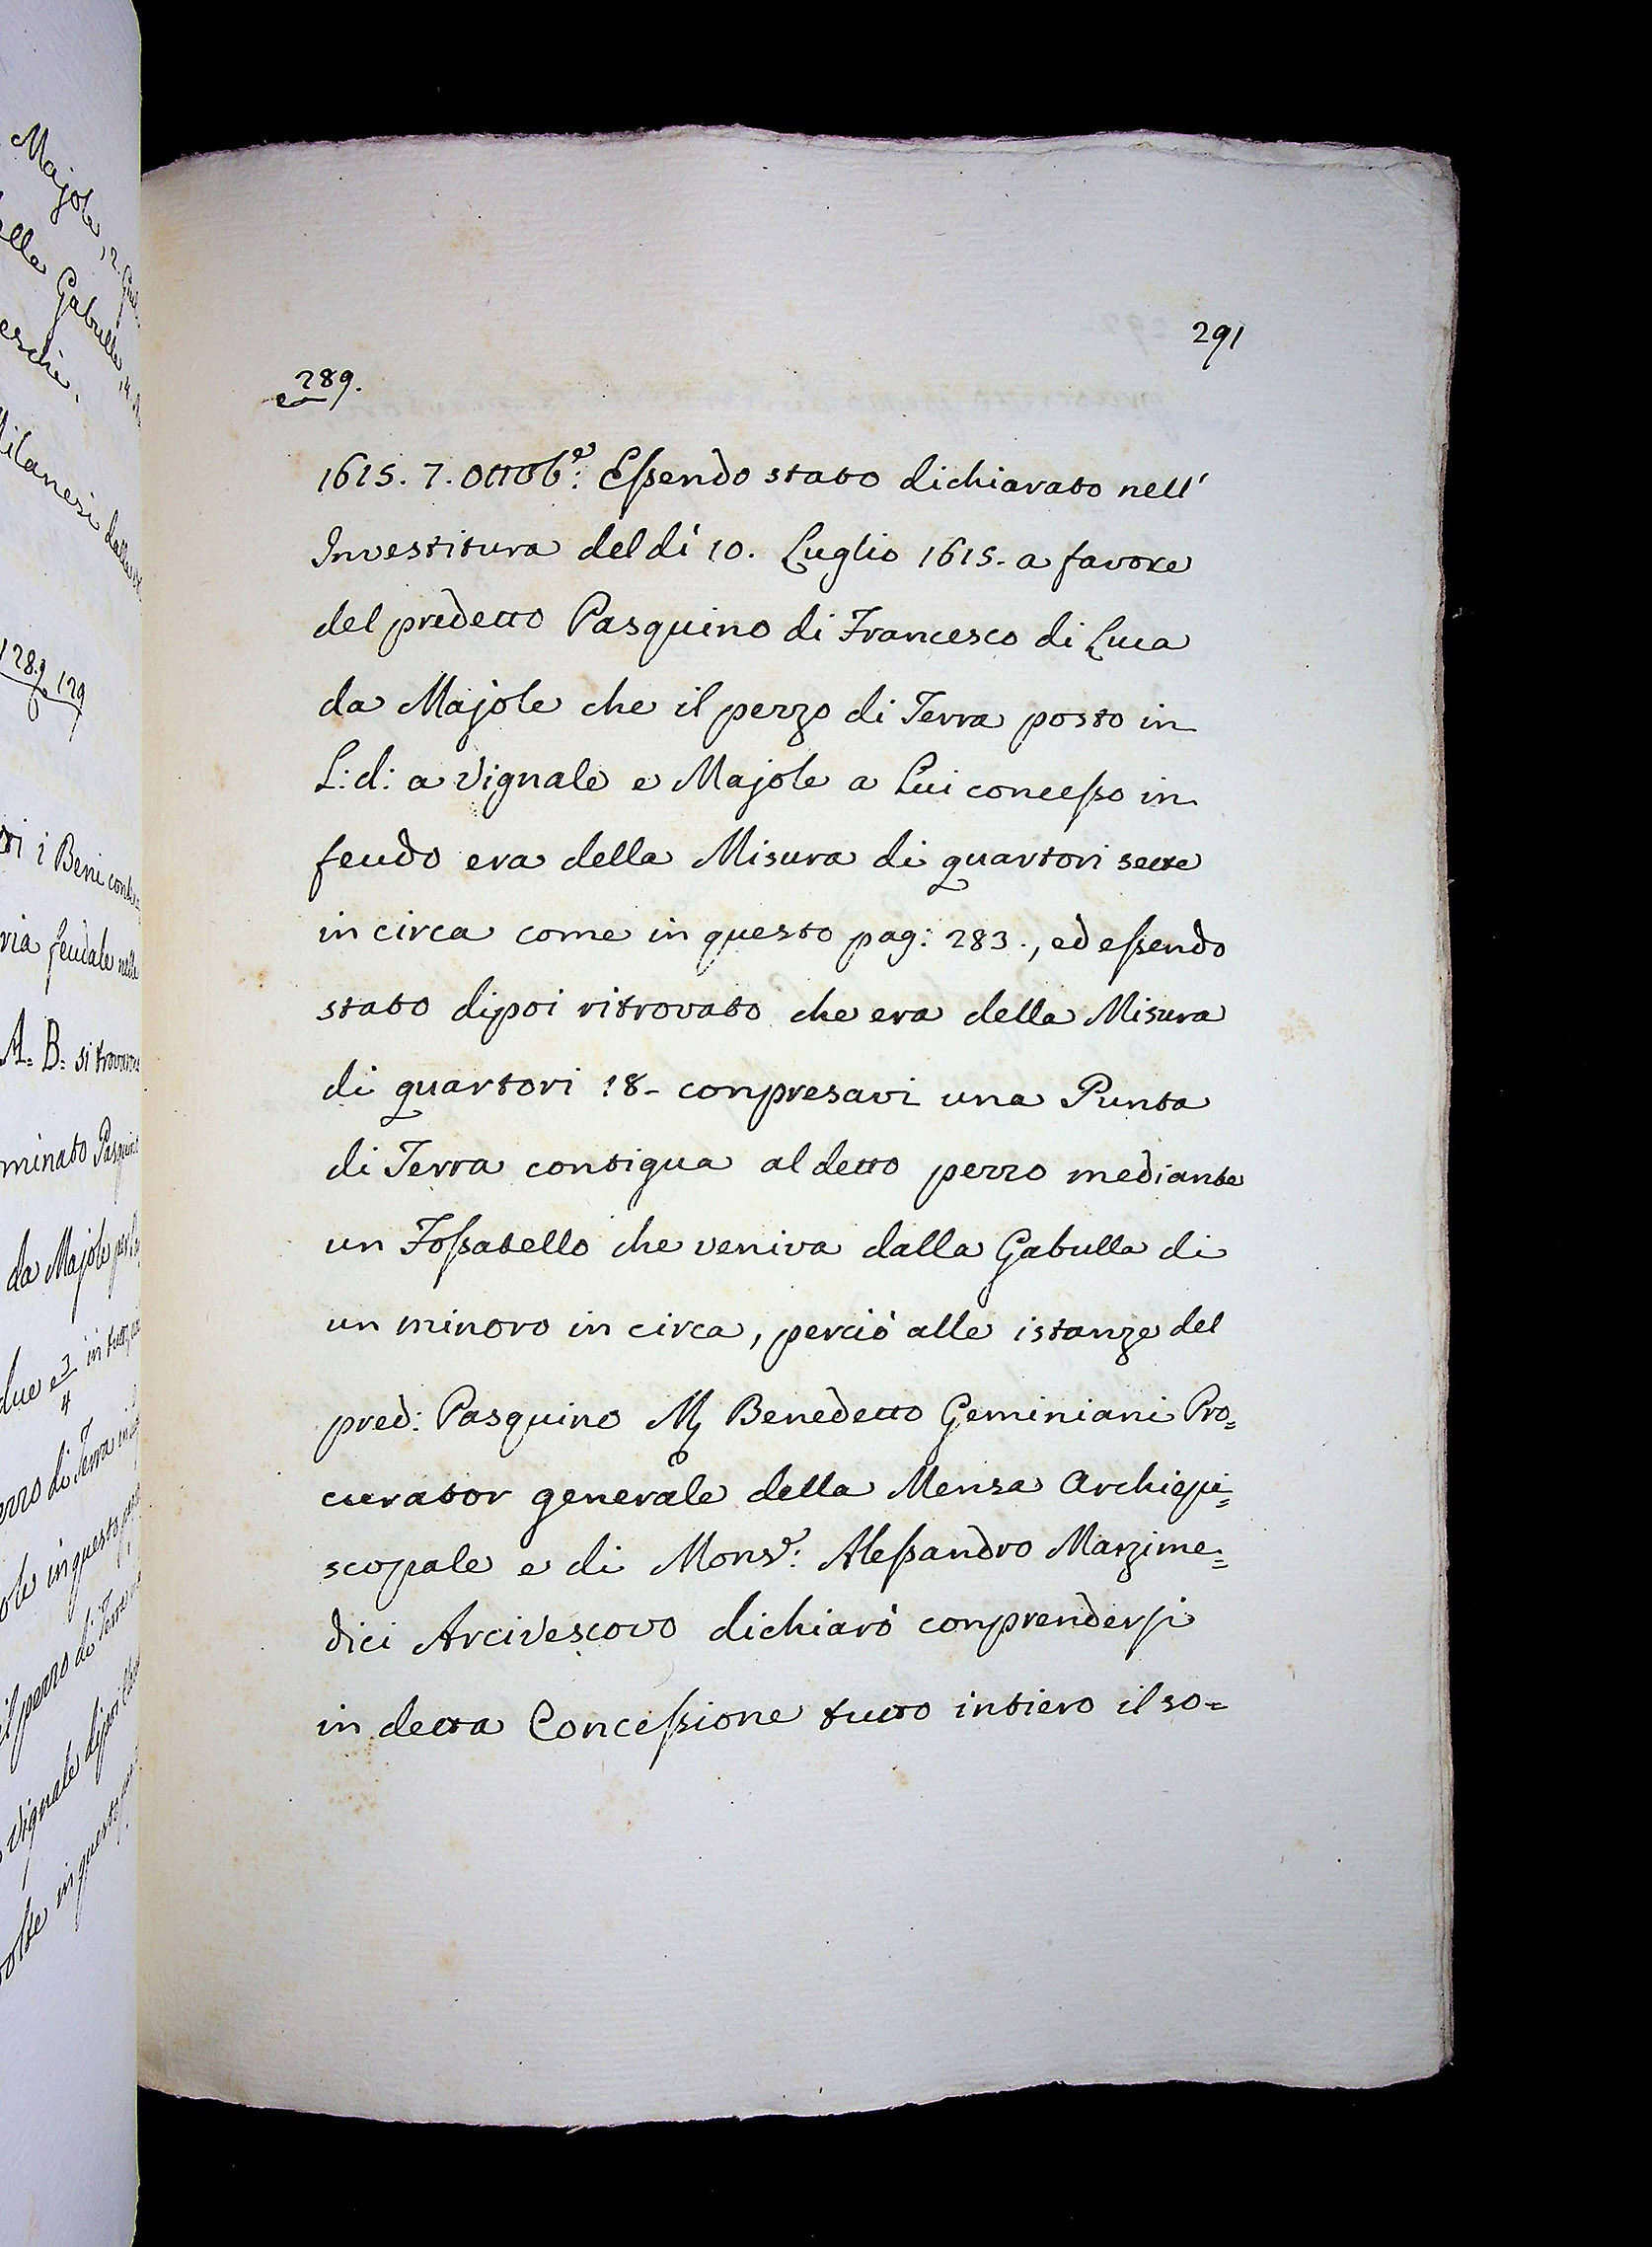 Majole, 12. Giu
alla Gabulla, 14.
eschi.
Milanesi dalle
1289 129
i Beni conte
ria feudale nelle
A. B. si trovarono
minato Pasquino
da Majole per
due e 3/4 in tutto
pezzo di Terra in
ole in questo pag
il pezzo di Terra
Vignale dipoi
volte in questo
291
289.
1615. 7. Ottobᵉ: Eſsendo stato dichiarato nell'
Investitura del dì 10. Luglio 1615. a favore
del predetto Pasquino di Francesco di Luca
da Majole che il pezzo di Terra posto in
L: d: a Vignale e Majole a Lui conceſso in
feudo era della Misura di quartori sette
in circa come in questo pag: 283., ed eſsendo
stato dipoi ritrovato che era della Misura
di quartori 18- conpresavi una Punta
di Terra contigua al detto pezzo mediante
un Foſsatello che veniva dalla Gabulla di
un minoro in circa, perciò alle istanze del
pred: Pasquino M Benedetto Geminiani Pro=
curator generale della Mensa Archiepi=
scopale e di Monsʳ: Aleſsandro Marzime=
dici Arcivescovo dichiarò conprenderſi
in detta Conceſsione tutto intiero il so=